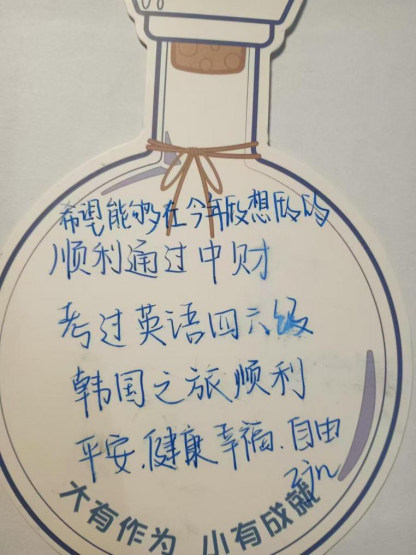 希望能够在今年成想成的
顺利通过中财
考过英语四六级
韩国之旅顺利
平安.健康幸福.自由
大有作为 小有成就